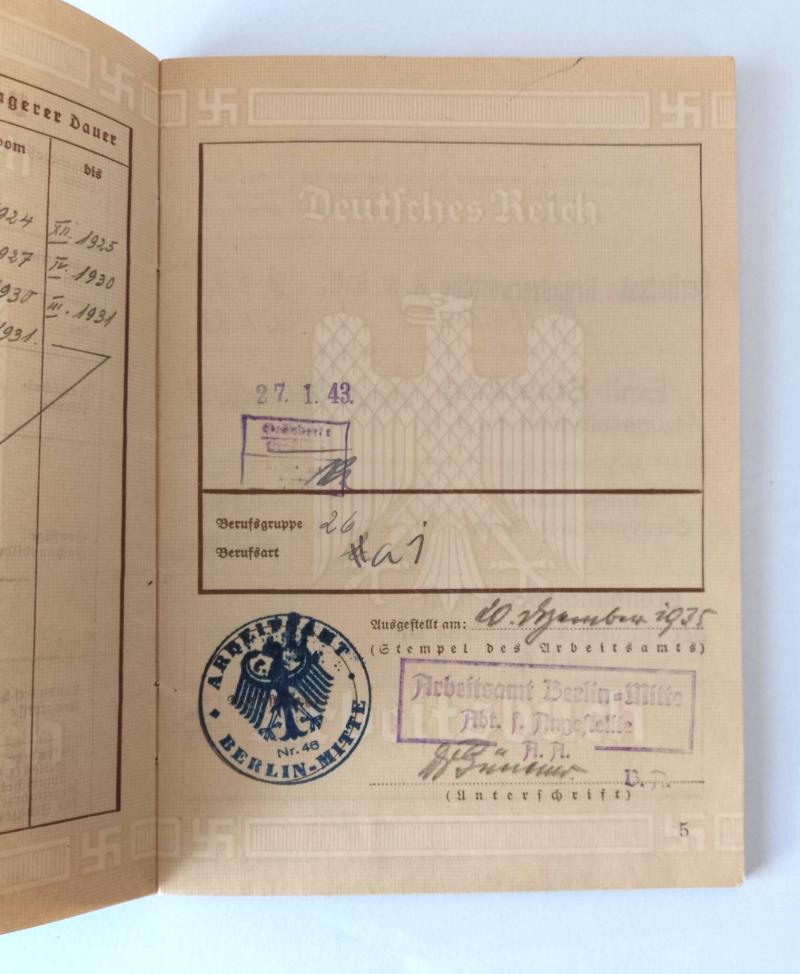 ngerer Dauer
vom
bis
924 XII. 1925
927 IV. 1930
930 III. 1931
1931.
Deutsches Reich
27. 1. 43.
Berufsgruppe 26
Berufsart a 1
Ausgestellt am: 20. Dezember 1935
(Stempel des Arbeitsamts)
ARBEITSAMT
BERLIN-MITTE
Nr. 46
Arbeitsamt Berlin-Mitte
Abt. f. Angestellte
J. A.
(Unterschrift)
5